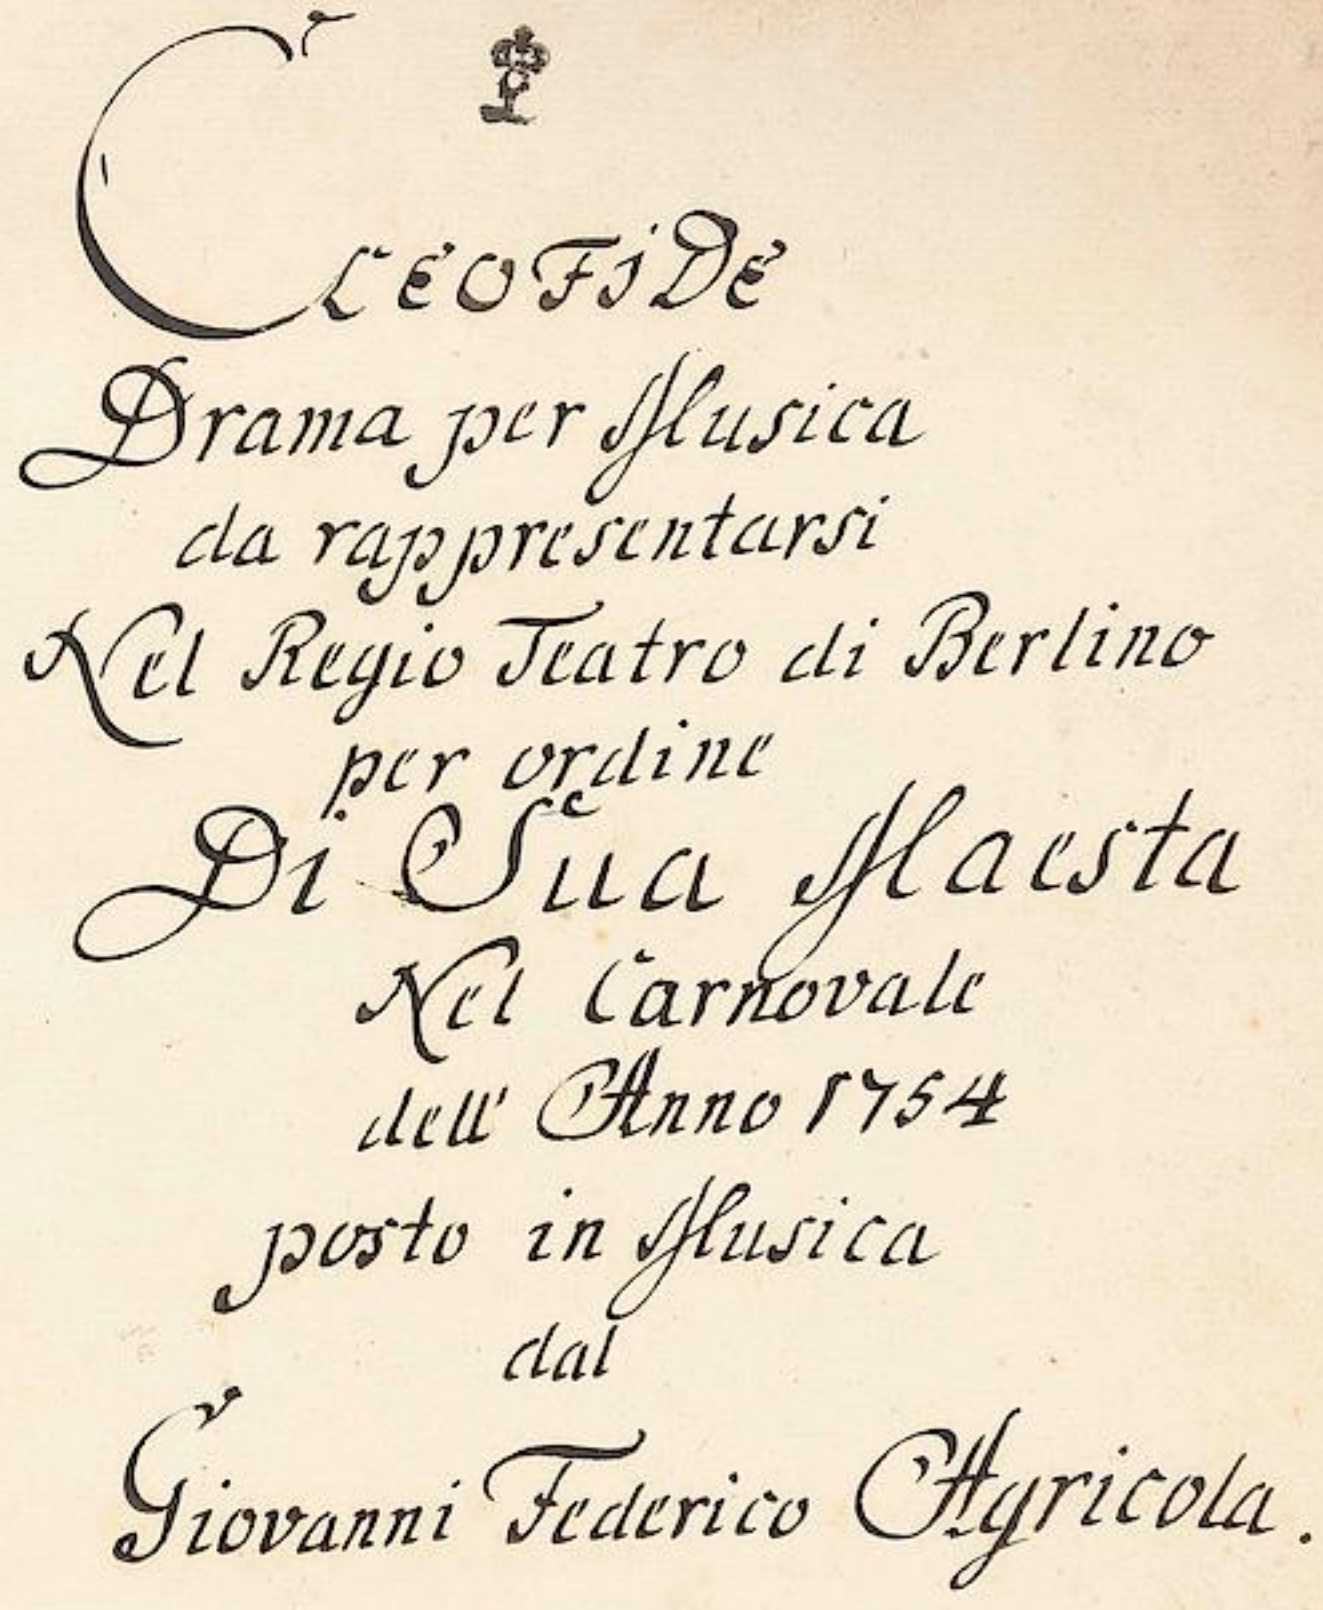 CLEOFIDE
Drama per Musica
da rappresentarsi
Nel Regio Teatro di Berlino
per ordine
Di Sua Maesta
Nel Carnovale
dell' Anno 1754
posto in Musica
dal
Giovanni Federico Agricola.